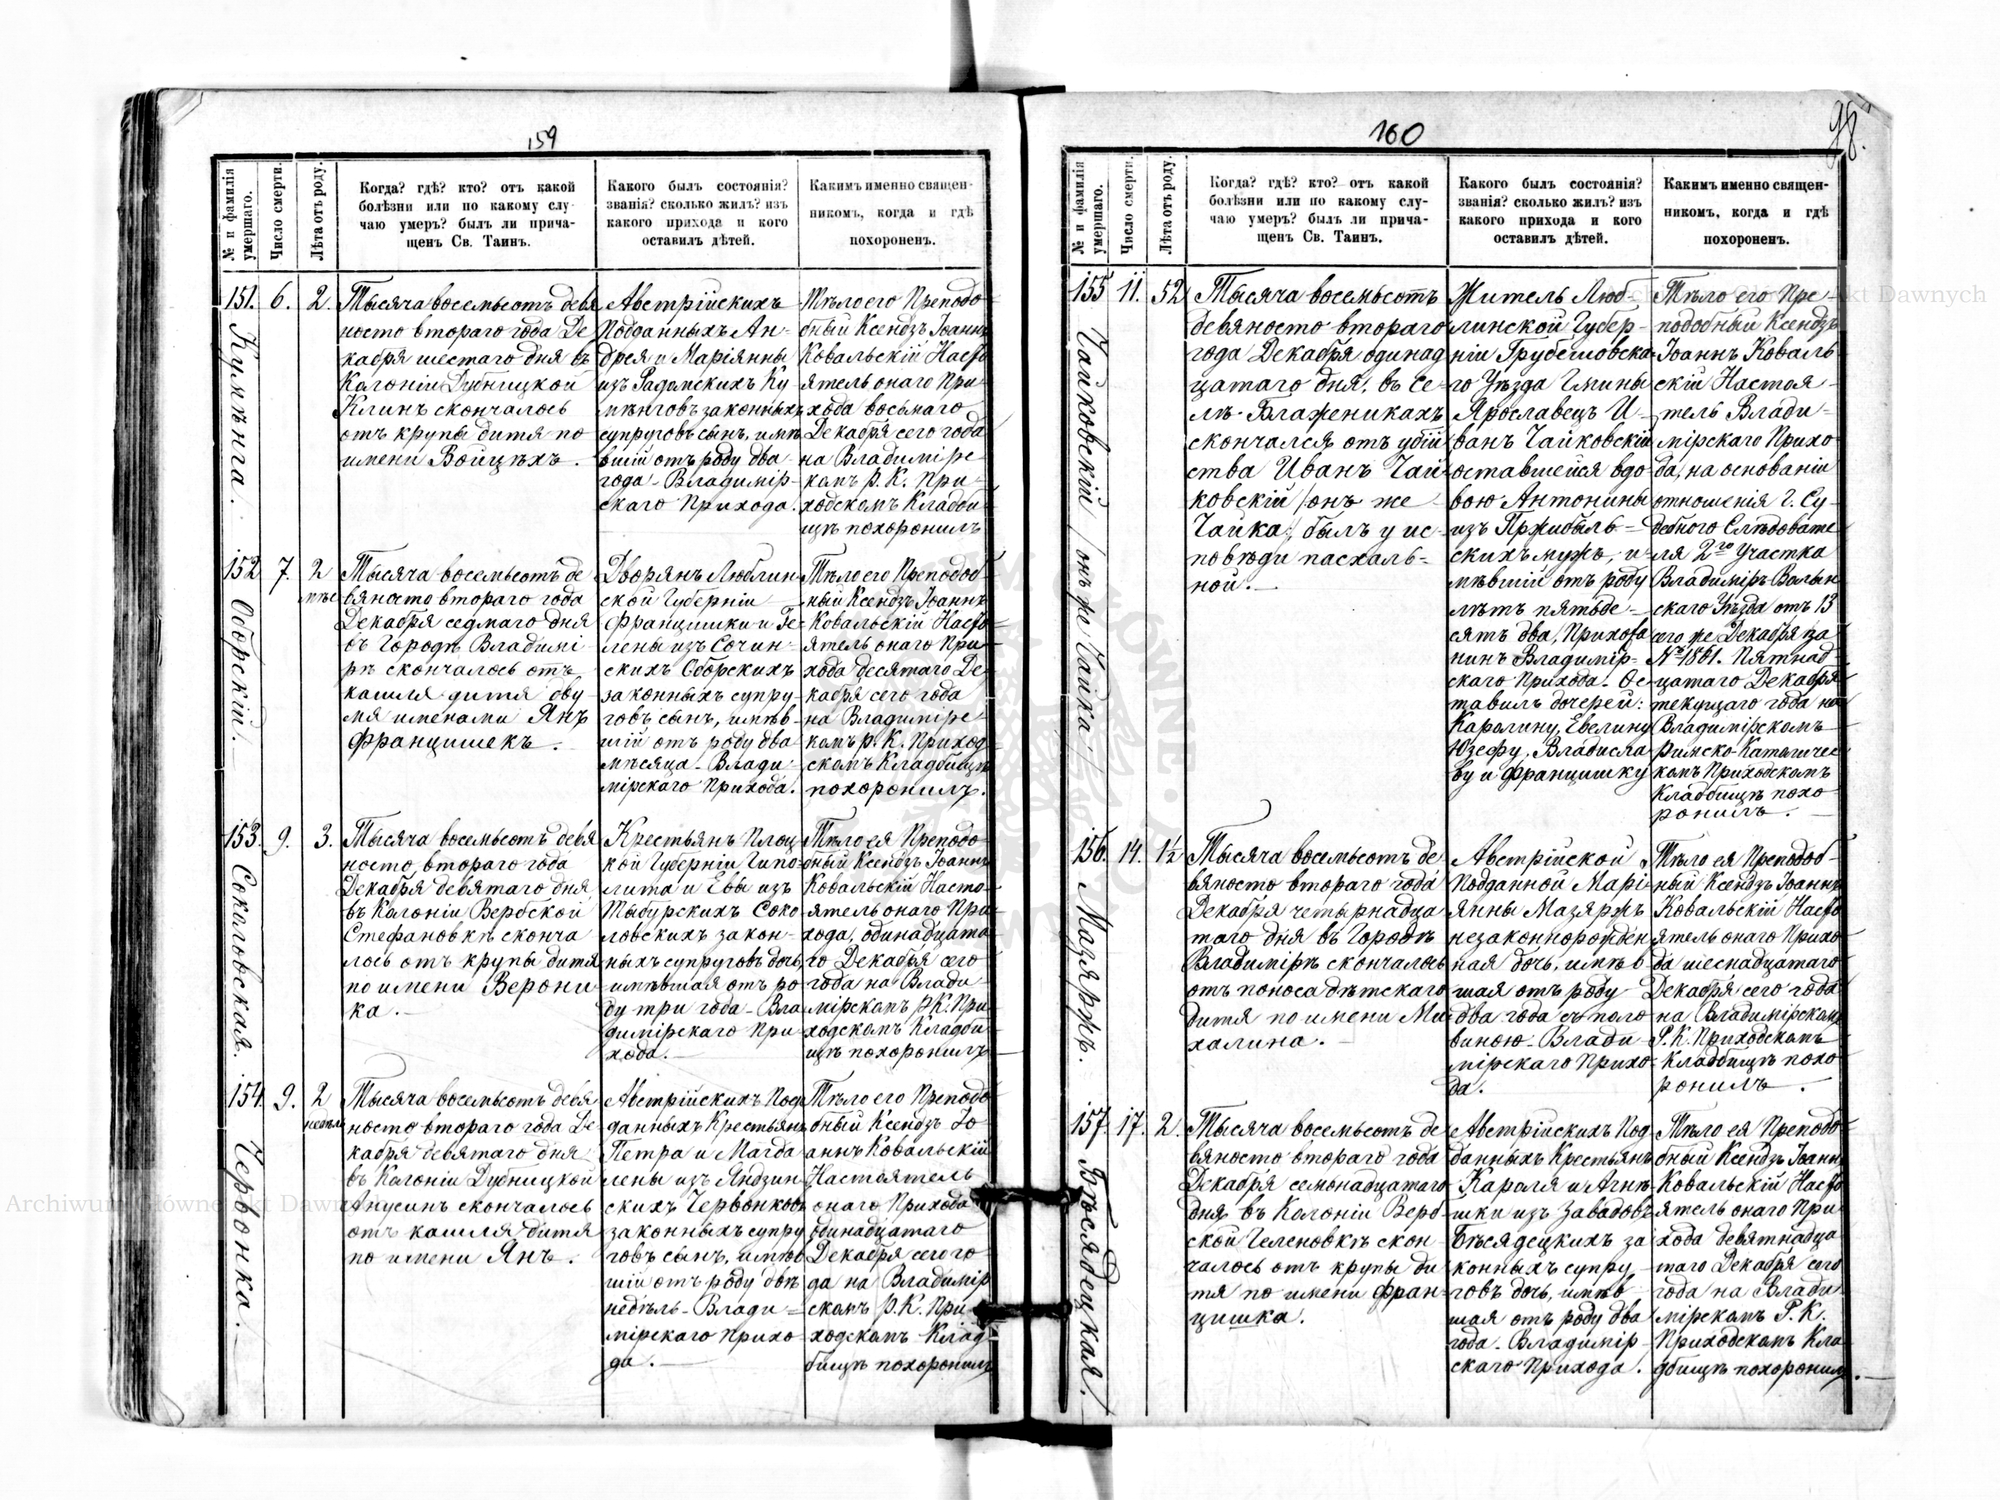 159
№ и фамилія умершаго.
Число смерти.
Лѣта отъ роду.
Когда? гдѣ? кто? отъ какой
болѣзни или по какому слу-
чаю умеръ? былъ ли прича-
щенъ Св. Таинъ.
Какого былъ состоянія?
званія? сколько жилъ? изъ
какого прихода и кого
оставилъ дѣтей.
Какимъ именно священ-
никомъ, когда и гдѣ
похороненъ.
151.
Кумѣнга.
6.
2.
Тысяча восемьсотъ девя
носто втораго года Де
кабря шестаго дня въ
Колоніи Дубницкой
Клинъ скончалось
отъ крупы дитя по
имени Войцѣхъ.
Австрійскихъ
Подданныхъ Ан-
дрея и Маріянны
изъ Радомскихъ Ку
мѣнговъ законныхъ
супруговъ сынъ, имѣ
вшій отъ роду два
года - Владимір-
скаго Прихода.
Тѣло его Преподо-
бный Ксендзъ Іоаннъ
Ковальскій Насто
ятель онаго При
хода восьмаго
Декабря сего года
на Владимірс
комъ Р. К. При-
ходскомъ Кладби
щѣ похоронилъ
152
Оборскій.
7.
2
мѣс
Тысяча восемьсотъ де
вяносто втораго года
Декабря седмаго дня
въ Городѣ Владимі
рѣ скончалось отъ
кашля дитя дву
мя именами Янъ
Францишекъ.
Дворянъ Люблин
ской Губерніи
Францишки и Ге-
лены изъ Сочин-
скихъ Оборскихъ
законныхъ супру
говъ сынъ, имѣв-
шій отъ роду два
мѣсяца - Влади-
мірскаго Прихода.
Тѣло его Преподоб-
ный Ксендзъ Іоаннъ
Ковальскій Насто
ятель онаго При
хода десятаго Де-
кабря сего года
на Владимірс
комъ Р. К. Приход
скомъ Кладбищѣ
похоронилъ.
153.
Соколовская.
9.
3.
Тысяча восемьсотъ девя
носто втораго года
Декабря девятаго дня
въ Колоніи Вербской
Стефановкѣ сконча
лось отъ крупы дитя
по имени Верони
ка.
Крестьянъ Плоц
кой Губерніи Гипо
лита и Евы изъ
Тыбурскихъ Соко
ловскихъ закон-
ныхъ супруговъ дочь,
имѣвшая отъ ро
ду три года - Вла
димірскаго При
хода.
Тѣло ея Преподо
бный Ксендзъ Іоаннъ
Ковальскій Насто-
ятель онаго При
хода, одинадцата
го Декабря сего
года на Влади
мірскомъ Р. К. При
ходскомъ Кладби
щѣ похоронилъ
154.
Червонка.
9.
2
недѣли
Тысяча восемьсотъ девя
носто втораго года Де
кабря девятаго дня
въ Колоніи Дубницкой
Анусинъ скончалось
отъ кашля дитя
по имени Янъ.
Австрійскихъ Под
данныхъ Крестьянъ
Петра и Магда
лены изъ Яндзин
скихъ Червонковъ
законныхъ супру
говъ сынъ, имѣв
шій отъ роду двѣ
недѣль - Влади
мірскаго Прихо
да.
Тѣло его Преподо
бный Ксендзъ Іо
аннъ Ковальскій
Настоятель
онаго Прихода
одинадцатаго
Декабря сего го
да на Владимір
скомъ Р. К. При
ходскомъ Клад
бищѣ похоронилъ
160
98.
№ и фамилія умершаго.
Число смерти.
Лѣта отъ роду.
Когда? гдѣ? кто? отъ какой
болѣзни или по какому слу-
чаю умеръ? былъ ли прича-
щенъ Св. Таинъ.
Какого былъ состоянія?
званія? сколько жилъ? изъ
какого прихода и кого
оставилъ дѣтей.
Какимъ именно священ-
никомъ, когда и гдѣ
похороненъ.
155
Чайковскій /онъ же Чайка/
11.
52
Тысяча восемьсотъ
девяносто втораго
года Декабря одинад
цатаго дня, въ се-
лѣ Блаженикахъ
скончался отъ убій
ства Иванъ Чай
ковскій /онъ же
Чайка/, былъ у ис-
повѣди пасхаль-
ной.
Житель Люб-
линской Губер-
ніи Грубешовска
го Уѣзда Гмины
Ярославецъ И-
ванъ Чайковскій
оставшейся вдо-
вою Антонины
изъ Пржибыль-
скихъ мужъ, и-
мѣвшій отъ роду
лѣтъ пятьде-
сятъ два, Прихожа
нинъ Владимір-
скаго Прихода. Ос-
тавилъ дочерей:
Каролину, Евелину
Юзефу, Владисла
ву и Францишку
Тѣло его Пре
подобный Ксендзъ
Іоаннъ Коваль
скій Настоя-
тель Влади-
мірскаго Прихо
да, на основаніи
отношенія Г. Су-
дебного Слѣдовате
ля 2го Участка
Владиміръ Волын
скаго Уѣзда отъ 13
сего же Декабря за
№ 1861. Пятнад-
цатаго Декабря
текущаго года на
Владимірскомъ
Римско-Католичес
комъ Приходскомъ
Кладбищѣ похо
ронилъ.
156.
Мазяржъ.
14.
1½
Тысяча восемьсотъ де
вяносто втораго года
Декабря четырнадца
таго дня въ Городѣ
Владимірѣ скончалось
отъ поноса дѣтскаго
дитя по имени Ми
халина.
Австрійской
Подданной Марі-
янны Мазяржъ
незаконнорожден
ная дочь, имѣв
шая отъ роду
два года съ поло
виною - Влади
мірскаго Прихо
да.
Тѣло ея Преподоб-
ный Ксендзъ Іоаннъ
Ковальскій Насто
ятель онаго Прихо
да шеснадцатаго
Декабря сего года
на Владимірскомъ
Р. К. Приходскомъ
Кладбищѣ похо
ронилъ.
157.
Бѣсядецкая.
17.
2.
Тысяча восемьсотъ де
вяносто втораго года
Декабря семонадцатаго
дня въ Колоніи Верб-
ской Геленовкѣ скон
чалось отъ крупы ди
тя по имени Фран-
цишка.
Австрійскихъ Под
данныхъ Крестьянъ
Кароля и Агнѣ
шки изъ Завадовъ
Бѣсядецкихъ за
конныхъ супру
говъ дочь, имѣв
шая отъ роду два
года - Владимір
скаго Прихода.
Тѣло ея Преподо
бный Ксендзъ Іоаннъ
Ковальскій Насто
ятель онаго При
хода девятнадца
таго Декабря сего
года на Влади
мірскомъ Р. К.
Приходскомъ Кла
дбищѣ похоронилъ.
Archiwum Główne Akt Dawnych